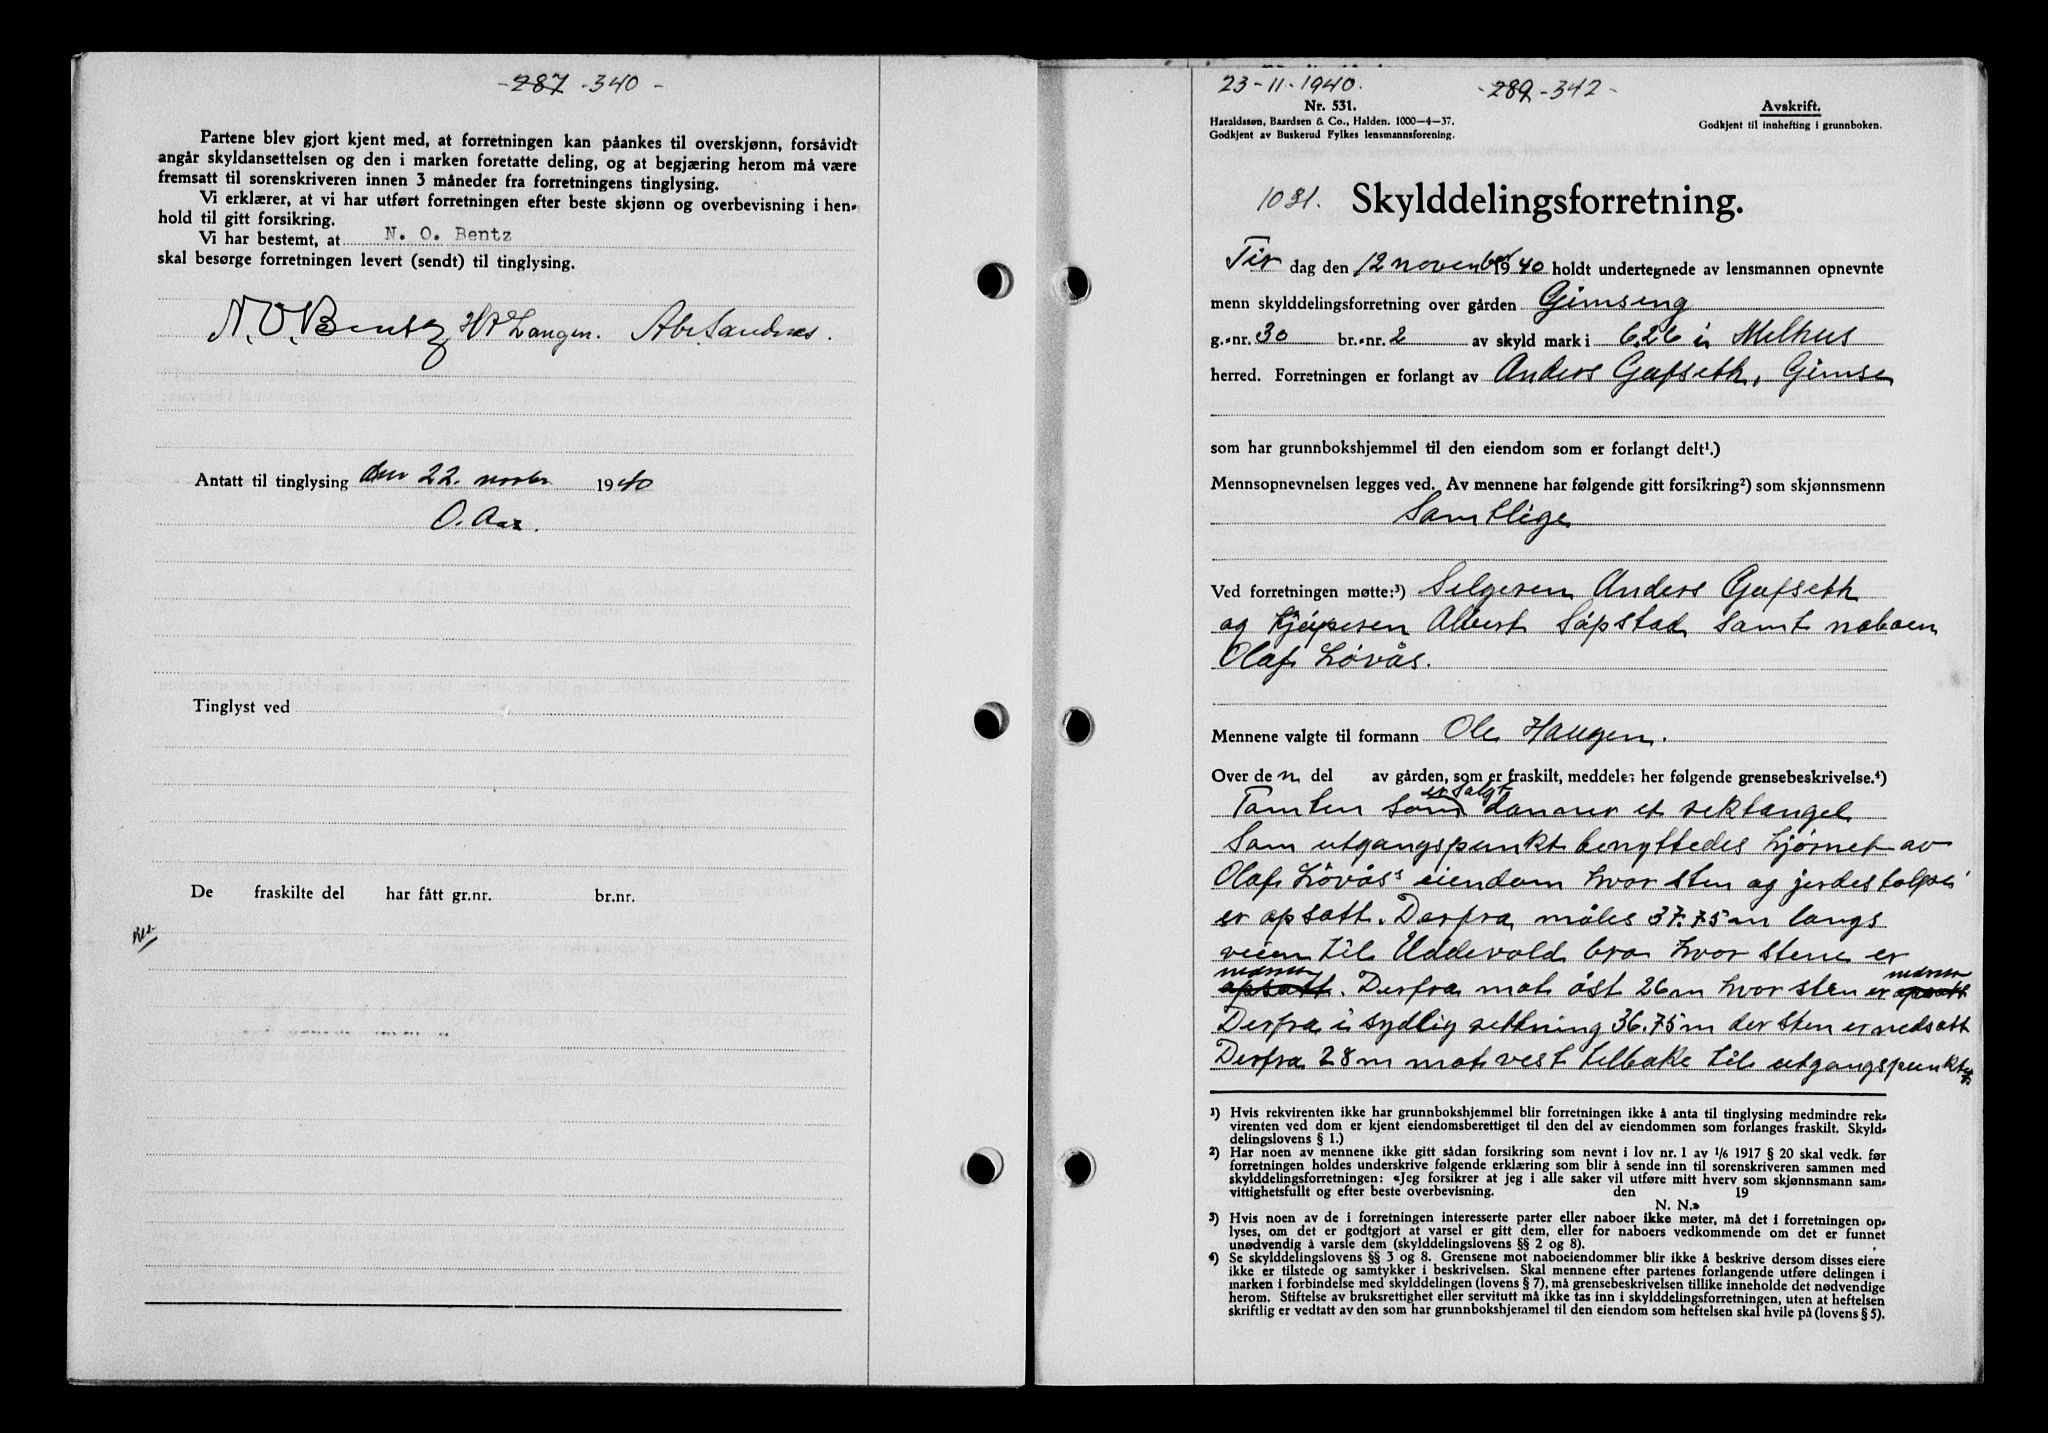 -287-340-
Partene blev gjort kjent med, at forretningen kan påankes til overskjønn, forsåvidt
angår skyldansettelsen og den i marken foretatte deling, og at begjæring herom må være
fremsatt til sorenskriveren innen 3 måneder fra forretningens tinglysing.
Vi erklærer, at vi har utført forretningen efter beste skjønn og overbevisning i hen-
hold til gitt forsikring.
Vi har bestemt, at N. O. Bentz
skal besørge forretningen levert (sendt) til tinglysing.
N. O. Bentz H P Langen. Abr. Sandnes.
Antatt til tinglysing den 22. novbr 1940
O. Aas.
Tinglyst ved
De fraskilte del har fått gr.nr. br.nr.
23-11-1940. -289-342-
Nr. 531.
Haraldssøn, Baardsen & Co., Halden. 1000-4-37.
Godkjent av Buskerud Fylkes lensmannsforening.
Avskrift.
Godkjent til innhefting i grunnboken.
1031. Skylddelingsforretning.
Tir dag den 12 november 1940 holdt undertegnede av lensmannen opnevnte
menn skylddelingsforretning over gården Gimseng
g.-nr. 30 br.-nr. 2 av skyld mark i 6,26 i Melhus
herred. Forretningen er forlangt av Anders Gafseth, Gimse
som har grunnbokshjemmel til den eiendom som er forlangt delt¹.)
Mennsopnevnelsen legges ved. Av mennene har følgende gitt forsikring²) som skjønnsmenn
Samtlige
Ved forretningen møtte:³) Selgeren Anders Gafseth
og kjøperen Albert Såpstad samt naboen
Olaf Løvås.
Mennene valgte til formann Ole Haugen.
Over de n del av gården, som er fraskilt, meddeles her følgende grensebeskrivelse.⁴)
Tomten som er salgt danner et rektangel
Som utgangspunkt benyttedes hjørnet av
Olaf Løvås's eiendom hvor sten og jerdestolpe
er opsatt. Derfra måles 37.75 m langs
veien til Uddevold bro hvor stene er
nedsatt
opsatt. Derfra mot øst 26 m hvor sten er nedsatt opsatt
Derfra i sydlig rettning 36.75 m der sten er nedsatt
Derfra 28 m mot vest tilbake til utgangspunktet.
¹) Hvis rekvirenten ikke har grunnbokshjemmel blir forretningen ikke å anta til tinglysing medmindre rek-
virenten ved dom er kjent eiendomsberettiget til den del av eiendommen som forlanges fraskilt. Skyld-
delingslovens § 1.)
²) Har noen av mennene ikke gitt sådan forsikring som nevnt i lov nr. 1 av 1/6 1917 § 20 skal vedk. før
forretningen holdes underskrive følgende erklæring som blir å sende inn til sorenskriveren sammen med
skylddelingsforretningen: «Jeg forsikrer at jeg i alle saker vil utføre mitt hverv som skjønnsmann sam-
vittighetsfullt og efter beste overbevisning. den 19
N. N.»
³) Hvis noen av de i forretningen interesserte parter eller naboer ikke møter, må det i forretningen op-
lyses, om det er godtgjort at varsel er gitt dem, eller for naboers vedkommende om det er funnet
unødvendig å varsle dem (skylddelingslovens §§ 2 og 8).
⁴) Se skylddelingslovens §§ 3 og 8. Grensene mot naboeiendommer blir ikke å beskrive dersom disses eiere
ikke er tilstede og samtykker i beskrivelsen. Skal mennene efter partenes forlangende utføre delingen i
marken i forbindelse med skylddelingen (lovens § 7), må grensebeskrivelsen tillike inneholde det nødvendige
herom. Stiftelse av bruksrettighet eller servitutt må ikke tas inn i skylddelingsforretningen, uten at heftelsen
skriftlig er vedtatt av den som har grunnbokshjemmel til den eiendom som heftelsen skal hvile på (lovens § 5).